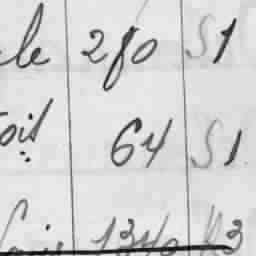 le 280 S1
oit 64 S1
1340